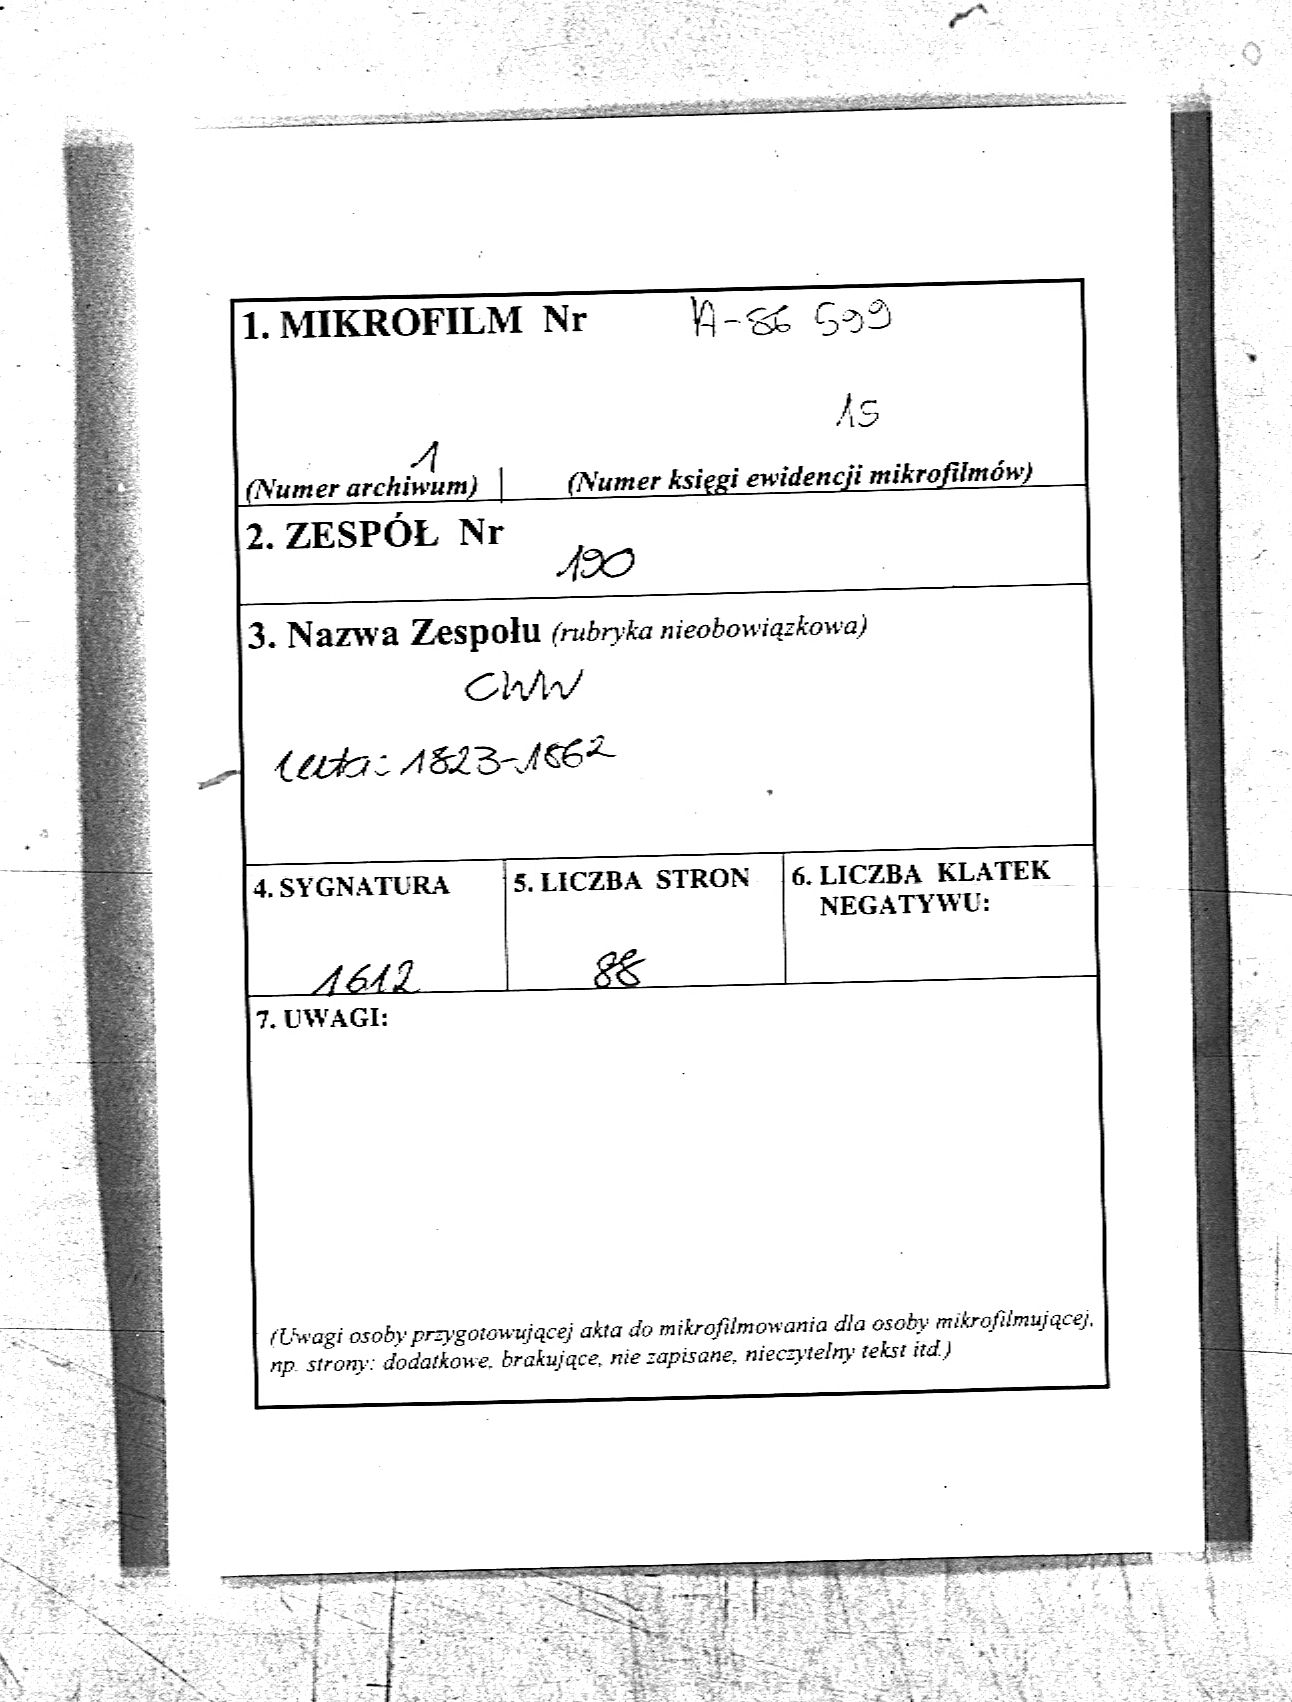 1. MIKROFILM Nr A-86 599
15
1
(Numer archiwum) (Numer księgi ewidencji mikrofilmów)
2. ZESPÓŁ Nr
190
3. Nazwa Zespołu (rubryka nieobowiązkowa)
CWW
lata: 1823-1862
4. SYGNATURA 5. LICZBA STRON 6. LICZBA KLATEK
NEGATYWU:
1612 88
7. UWAGI:
(Uwagi osoby przygotowującej akta do mikrofilmowania dla osoby mikrofilmującej,
np. strony: dodatkowe, brakujące, nie zapisane, nieczytelny tekst itd.)